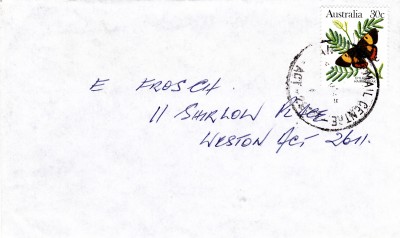 Australia 30c
MAIL CENTRE
ACT
E FROSCH.
11 SHIRLOW PLACE
WESTON ACT 2611.